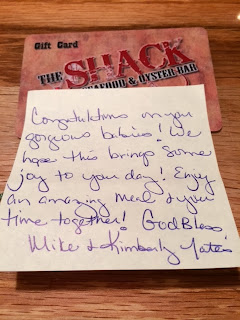 Gift Card
THE SHACK
SEAFOOD & OYSTER BAR
Congratulations on you
gorgeous babies! We
hope this brings some
joy to your day! Enjoy
an amazing meal & your
time together! God Bless!
Mike & Kimberly Yates